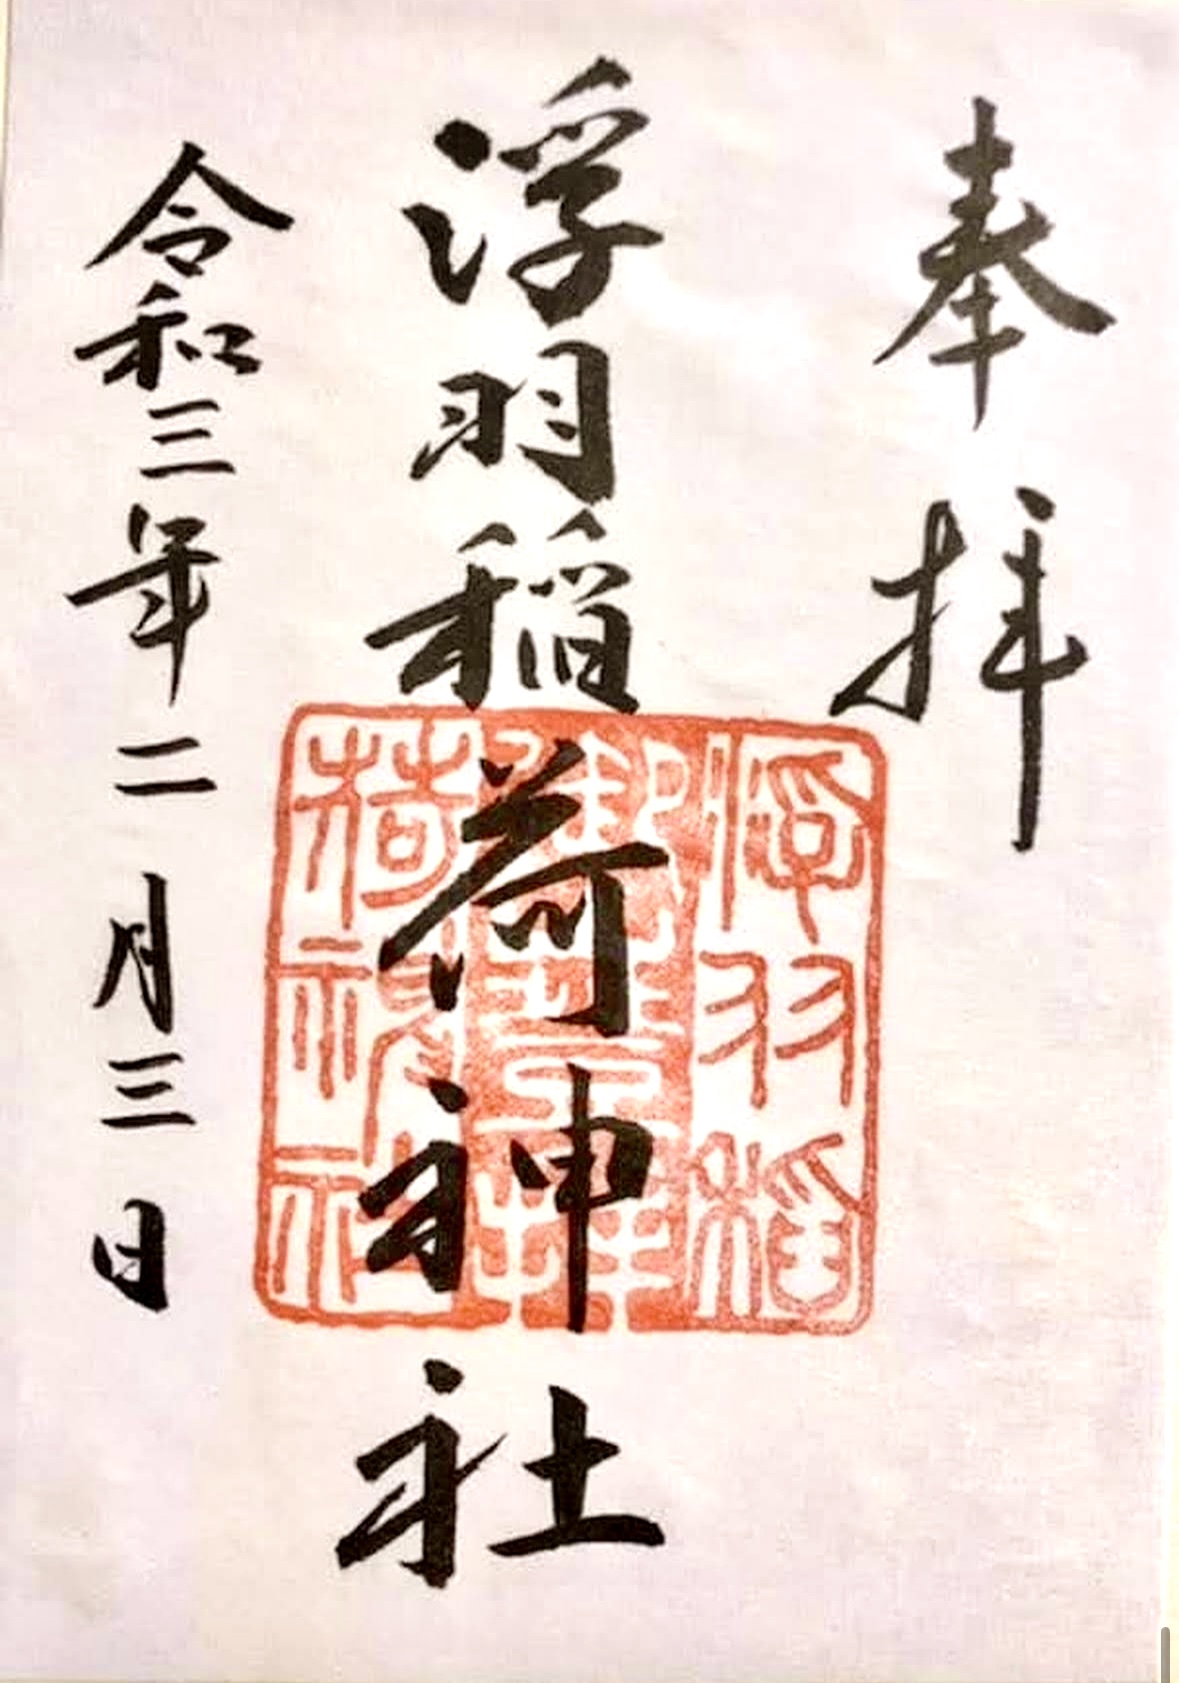 奉拝
浮羽稲荷神社
令和三年二月三日
浮羽稲
荷神社